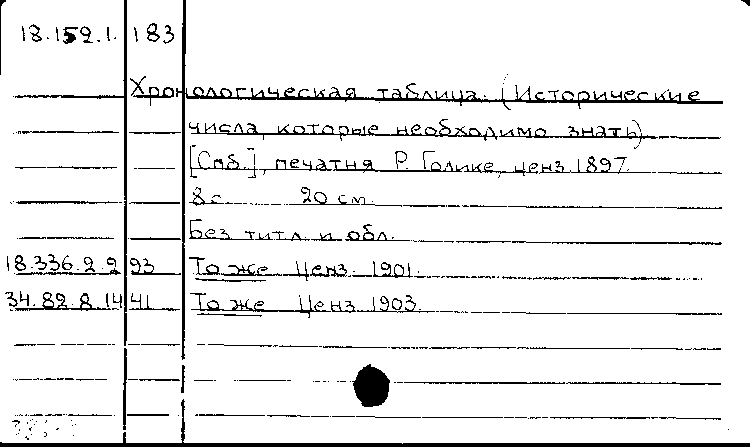 18.159.1. 183
Хронологическая таблица. (Исторические
числа, которые необходимо знать)
[Спб.], печатня Р. Голике, ценз. 1897.
8 с. 20 см.
Без титл. и обл.
18.336.2.2 93 То же Ценз. 1901.
34.82.8.14 41 То же Ценз. 1903.